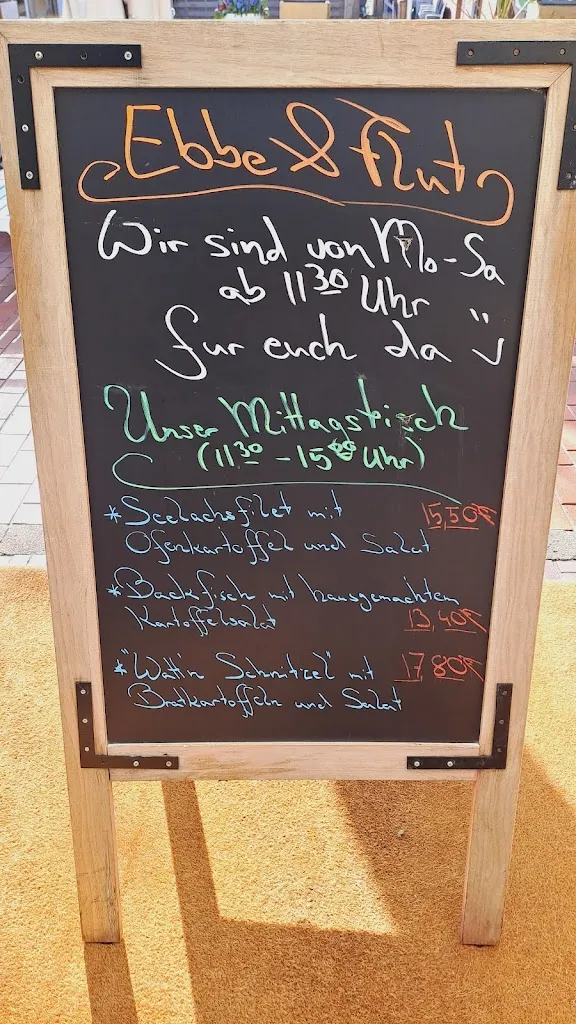 Ebbe & Flut
Wir sind von Mo-Sa
ab 11 30 Uhr
für euch da
Unser Mittagstisch
(11 30 - 15 00 Uhr)
* Seelachsfilet mit 15,50€
Ofenkartoffel und Salat
* Backfisch mit hausgemachtem
Kartoffelsalat 13,40€
* "Watt'n Schnitzel" mit 17,80€
Bratkartoffeln und Salat